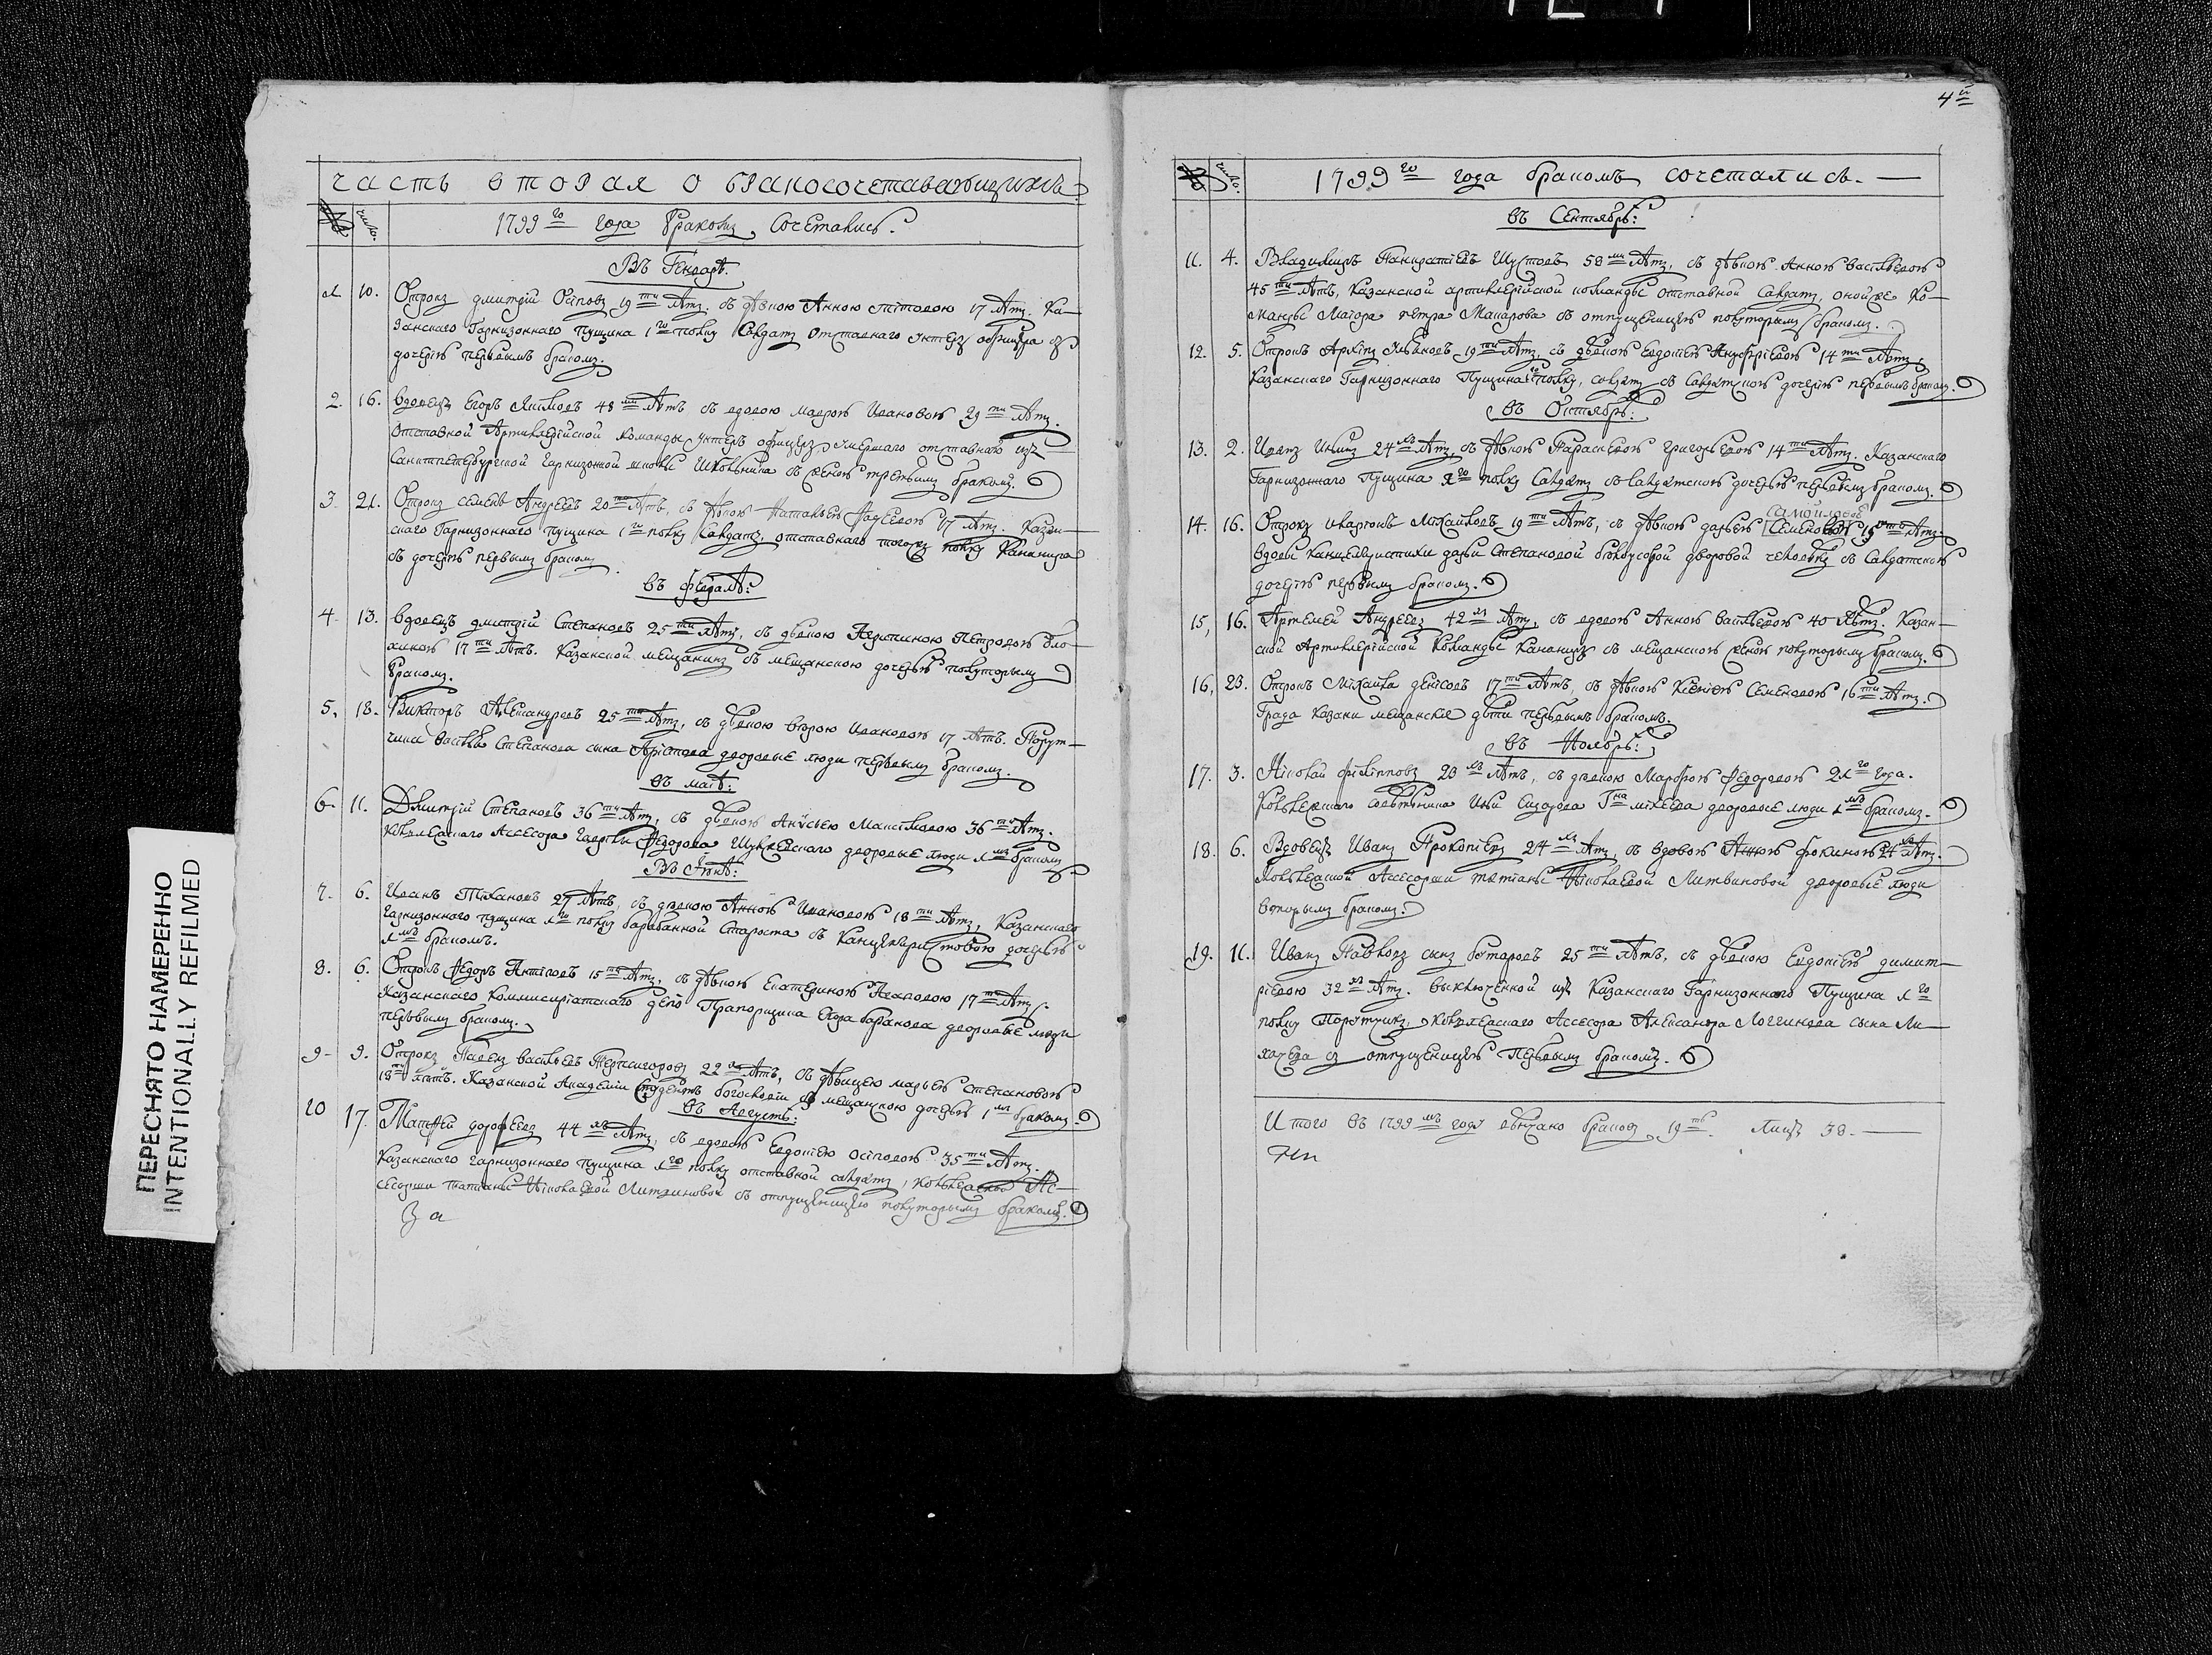 часть вторая о бракосочетавающихся
№ число.
1799го года бракомъ сочетались.
Въ Генваре.
1. 10. Отрокъ дмитрій Осіповъ 19ти летъ. съ девкою Анною тітовою 17 летъ. Ка-
занскаго Гарнизоннаго Пущина 1го полку Салдатъ отставнаго унтеръ офицера съ
дочерью первымъ бракомъ.
2. 16. вдовецъ Егоръ Якимовъ 48ми летъ съ вдовою маврою Ивановою 29ти летъ.
отставной Артиллерійской команды унтеръ офицеръ умершаго отставнаго изъ
Санктпетербургской гарнизонной школы Школьника съ женою третьимъ бракомъ.
3 21. Отрокъ семенъ Андреевъ 20ти летъ, съ девкою Натальею 17 летъ. Казан-
скаго гарнизоннаго пущина 1го полку Салдатъ, отставнаго тогожъ полку
съ дочерью первымъ бракомъ.
въ феврале:
4. 13. вдовецъ дмитрій Степановъ 25ти летъ, съ девкою Агрипиною Петровою бло-
хиною 17ти летъ. Казанской мещанинъ съ мещанскою дочерью полуторымъ
бракомъ.
5. 18. Викторъ Александровъ 25ти летъ, съ девкою верою Ивановою 17 летъ. Порут-
чика василья Степанова сына Арістова дворовые люди первымъ бракомъ.
въ маіе:
6. 11. Дмитрій Степановъ 36ти летъ, съ девкою Анусьею Максімовою 36ти летъ.
коллежскаго Ассесора Гаврилы Федорова дворовые люди 1мъ бракомъ
Въ Іюне:
7. 6. Иванъ Тихановъ 27 летъ, съ девкою Анною Ивановою 18ти летъ, Казанскаго
гарнизоннаго пущина 1го полку барабанной староста съ Канцеляристовою дочерью
1мъ бракомъ.
8. 6. Отрокъ Федоръ Антіповъ 15ти летъ, съ девкою Екатериною Агаповою 17ти летъ.
Казанскаго Коммисріатскаго депо Прапорщика Баранова дворовые люди
первымъ бракомъ.
9. 9. Отрокъ Павелъ васильевъ 22хъ летъ, съ девицею марьею степановою
18ти летъ. Казанской Академіи Студентъ богословіи съ мещанскою дочерью 1мъ бракомъ.
въ Августе:
10 17. Матфей дорофеевъ 44хъ летъ, съ вдовою Евдокіею осіповою 35ти летъ.
Казанскаго гарнизоннаго пущина 1го полку отставной салдатъ, коллежской Ас-
сесорши татьяны Ніколаевой Литвиновой съ отпущеницею полуторымъ бракомъ.
За
4й
№ число.
1799го года бракомъ сочетались.
въ Сентябре:
11. 4. Владимиръ Панкратіевъ Шустовъ 58ми летъ, съ девкою Анною васильевою
45ти летъ, Казанской артиллерійской команды отставной Салдатъ, оной же ко-
манды Маіора петра Макарова съ отпущеницею полуторымъ бракомъ.
12. 5. Отрокъ Архіпъ 19ти летъ, съ девкою Евдокіею 14ти летъ.
Казанскаго Гарнизоннаго Пущина полку, салдатъ съ салдатскою дочерью первымъ бракомъ.
въ Октябре:
13. 2. Иванъ Ильинъ 24хъ летъ, съ девкою Парасковею григорьевою 14ти летъ. Казанскаго
Гарнизоннаго Пущина 1го полку Салдатъ съ салдатскою дочерью первымъ бракомъ.
14. 16. Отрокъ иларіонъ Міхайловъ 19ти летъ, съ девкою дарьею Семеновой самойловою 19ти летъ
вдовы Канцеляристихи дарьи Степановой дворовой человекъ съ Салдатскою
дочерью первымъ бракомъ.
15, 16. Артемей Андреевъ 42хъ летъ, съ вдовою Анною васильевою 40 летъ. Казан-
ской Артиллерійской Команды Канонеръ съ мещанскою женою полуторымъ бракомъ.
16, 23. Отрокъ Міхаила денісовъ 17ти летъ, съ девкою Ксеніею Семеновою 16ти летъ.
Града Казани мещанскіе дети первымъ бракомъ.
въ Ноябре:
17. 3. Ніколай філіпповъ 23хъ летъ, съ девкою Марфою федоровою 21го года.
Коллежскаго советника Ильи Сидорова Гна міхеева дворовые люди 1мъ бракомъ.
18. 6. Вдовецъ Иванъ Прокопіевъ 24хъ летъ, съ вдовою Анною фокиною 24хъ летъ.
Коллежской Ассесорши татьяны Ніколаевой Литвиновой дворовые люди
вторымъ бракомъ.
19. 11. Иванъ Павловъ сынъ бутаровъ 25ти летъ, съ девкою Евдокіею димит-
ріевою 32хъ летъ. выключенной изъ Казанскаго Гарнизоннаго Пущина 1го
полку Порутчикъ, коллежскаго Ассесора Александра Логгинова сына Ли-
харева съ отпущеницею Первымъ бракомъ.
Итого въ 1799мъ году венчано браковъ 19ть. Лицъ 38.
ПЕРЕСНЯТО НАМЕРЕННО
INTENTIONALLY REFILMED